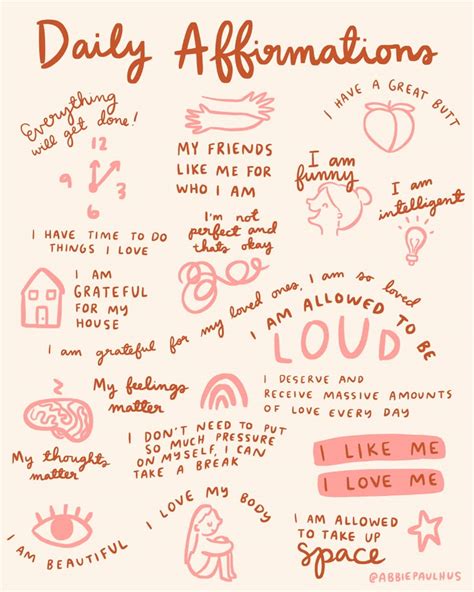 Daily Affirmations
Everything
will get done!
12
9 3
6
MY FRIENDS
LIKE ME FOR
WHO I AM
I HAVE A GREAT BUTT
I am
funny
I am
intelligent
I HAVE TIME TO DO
THINGS I LOVE
I'm not
perfect and
thats okay
I AM
GRATEFUL
FOR MY
HOUSE
I am grateful for my loved ones, I am so loved
I AM ALLOWED TO BE
LOUD
My feelings
matter
I DESERVE AND
RECEIVE MASSIVE AMOUNTS
OF LOVE EVERY DAY
My thoughts
matter
I DON'T NEED TO PUT
SO MUCH PRESSURE
ON MYSELF, I CAN
TAKE A BREAK
I LIKE ME
I LOVE ME
I AM BEAUTIFUL
I LOVE MY BODY
I AM ALLOWED
TO TAKE UP
SPACE
@ABBIEPAULHUS